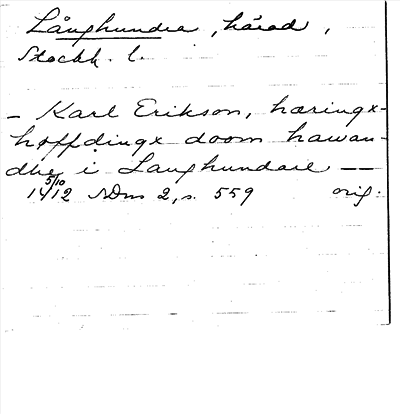 Långhundra, härad,
Stockh. l.
– Karl Erikson, hæringx-
høffdingx doom hawan-
dhe i Langhundare — —
14 5/10 12 SDns 2, s. 559 orig.